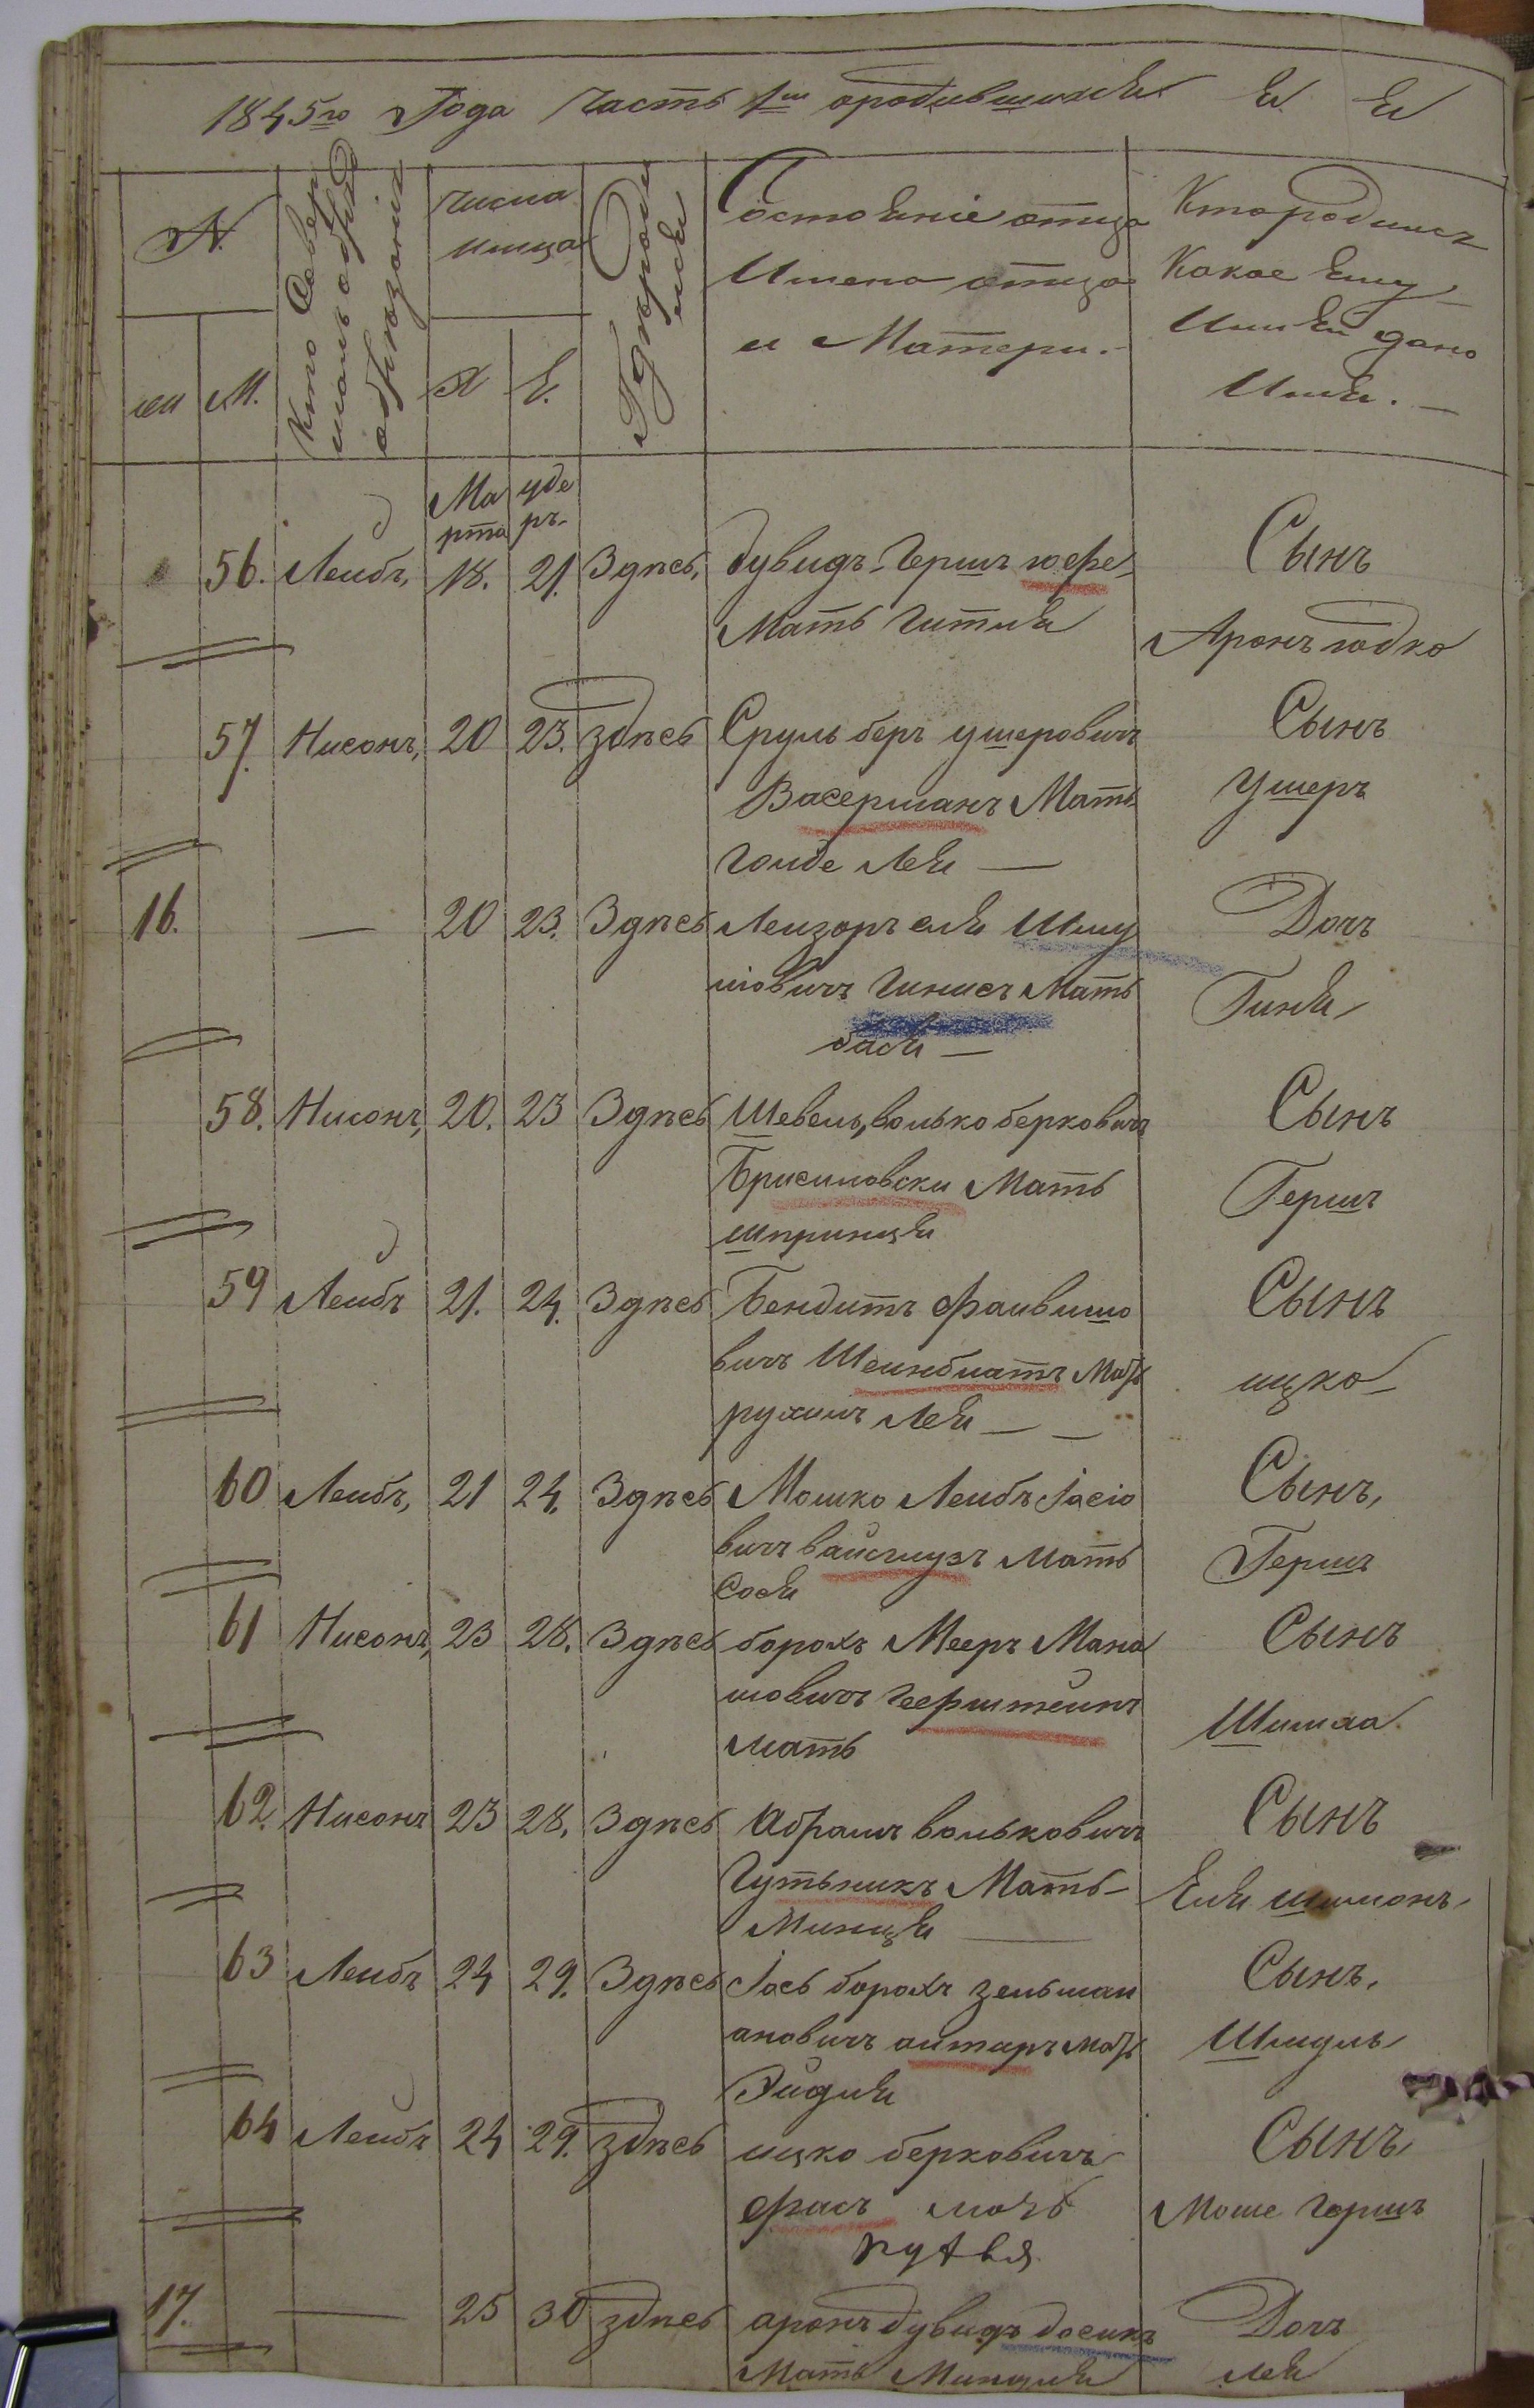 1845го Года Часть 1ая ородившихся
N.
жи М.
Кто Совер
шалъ обрядъ
обрезания
числа
мица
Х Е.
Где родился
Состояние отца
Имена отца
и Матери.-
Кто родился
Какое Ему
Или Ей дано
Имя.-
Ма
рта уде
ръ-
56. Леибъ, 18. 21. Здпсь, дувидъ-Гершъ юфе-
Мать Гитля
Сынъ
Аронъ юдко
57. Нисонъ, 20 23. здпсь Сруль беръ ушеровичъ
Васерманъ Мать
Голде Лея —
Сынъ
Ушеръ
16. — 20 23. Здпсь Леизоръ еля Шму
ловичъ Гинисъ Мать
бася —
Дочъ
Гиня
58. Нисонъ, 20. 23 Здпсь Шевель, волько берковичъ
Брисиловски Мать
шпринця
Сынъ
Гершъ
59 Леибъ 21. 24. Здпсь Бендитъ фаивишо
вичъ Шеинблатъ Мать
рухлъ Лея — —
Сынъ
ицко-
60 Леибъ, 21 24. Здпсь Мошко Леибъ Іосіо
вичъ ваисглузъ Мать
Сося
Сынъ,
Гершъ
61 Нисонъ, 23 28. Здпсь борохъ Мееръ Мана
шовичъ Геерштеинъ
мать
Сынъ
Шимха.
62. Нисонъ 23 28. Здпсь Абрамъ вольковичъ
Гутьникъ Мать-
Минця —
Сынъ
Еля шимонъ
63 Леибъ 24 29. Здпсь Іось борохъ зельман
ановичъ аитаръ мать
Эйдля
Сынъ.
Шмуль
64 Леибъ 24 29. здпсь ицко берковичъ
фасъ мать
рувля.
Сынъ
Моше Гершъ
17. — 25 30 здпсь аронъ дувидъ досикъ
Мать Миндля
Дочъ
лея